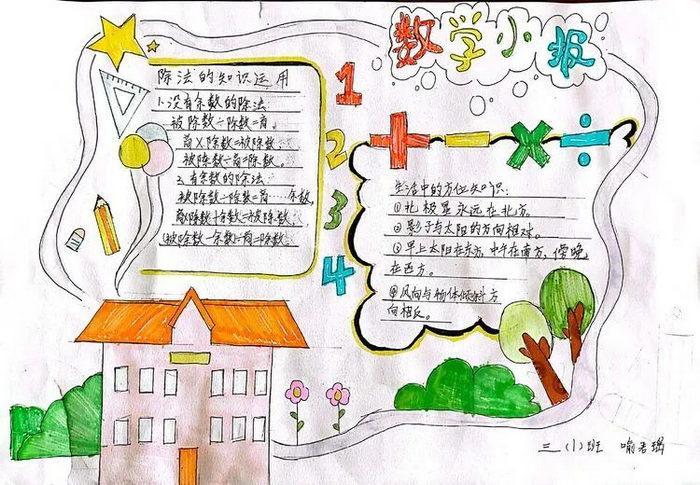 数学小报
除法的知识运用
1.没有余数的除法
被除数÷除数=商。
商×除数=被除数
被除数÷商=除数。
2.有余数的除法
被除数÷除数=商……余数。
商×除数+余数=被除数
(被除数-余数)÷商=除数
1
2
3
4
+ - × ÷
生活中的方位知识:
①北极星永远在北方。
②影子与太阳的方向相对。
③早上太阳在东方,中午在南方,傍晚
在西方。
④风向与物体倾斜方
向相反。
三(1)班